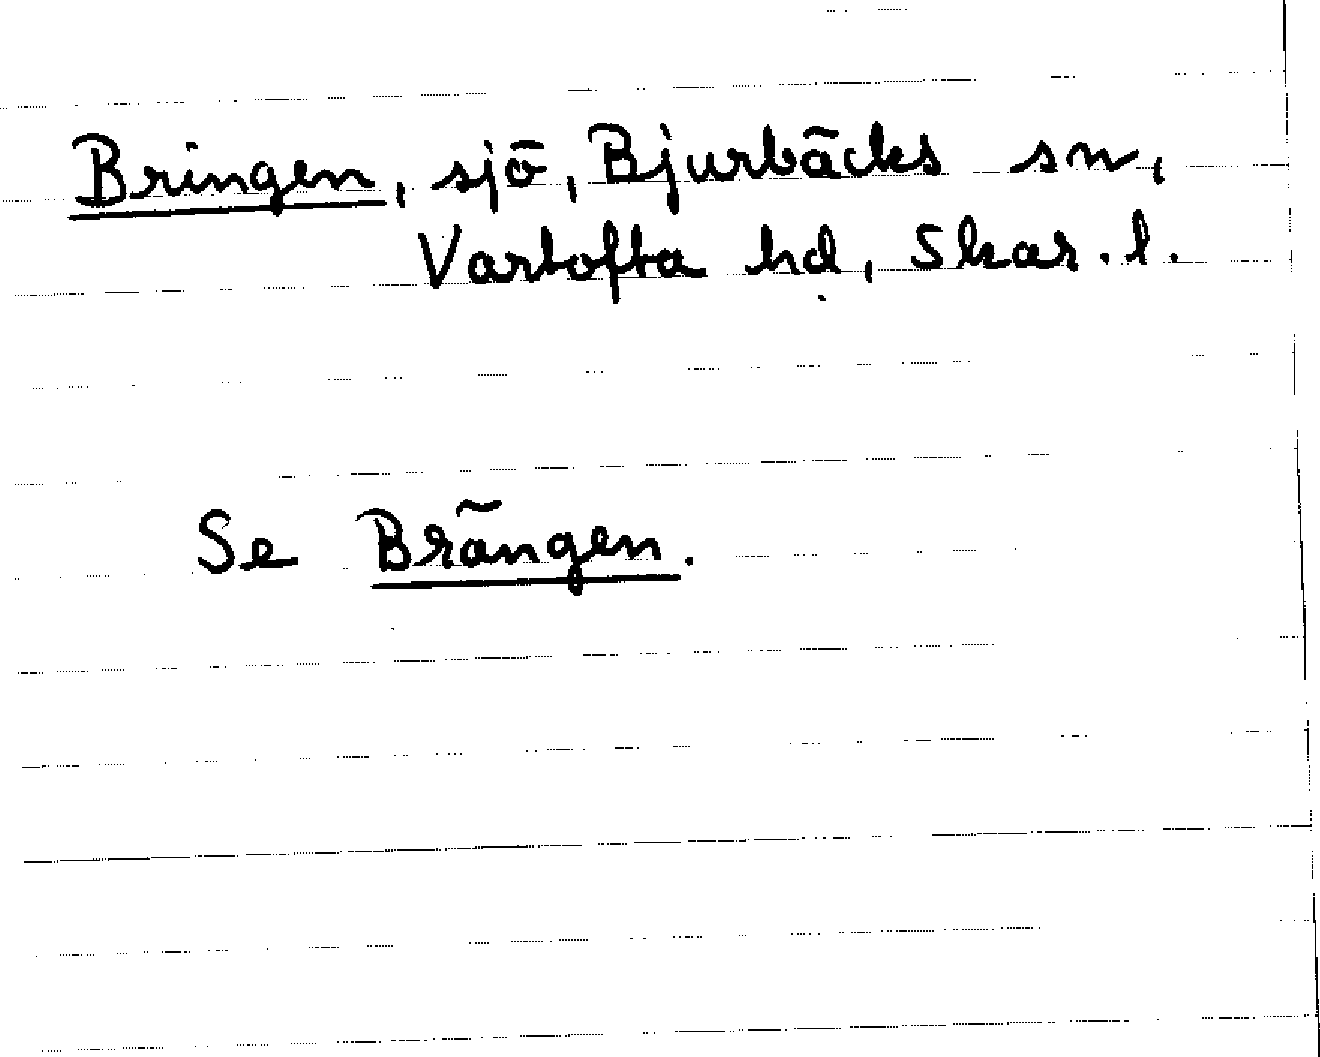 Bringen, sjö, Bjurbäcks sn,
Vartofta hd, Skar. l.
Se Brängen.